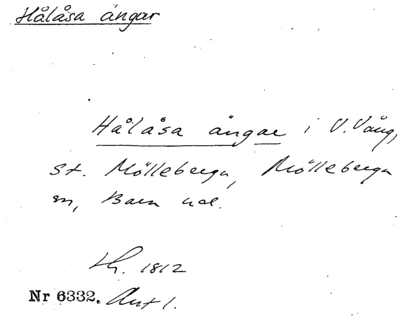 Hålåsa ängar
Hålåsa ängar i V. Vång,
St. Mölleberga, Mölleberga
sn, Bara hd.
Lh. 1812
Nr 6332. Akt 1.